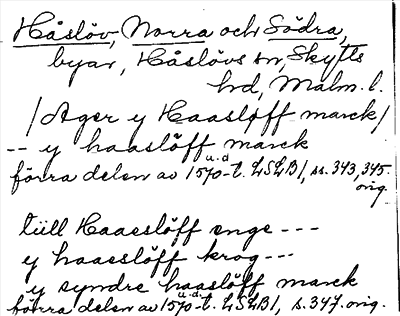 Håslöv, Norra och Södra,
byar, Håslövs sn, Skytts
hd, Malm. l.
/Ager y Haasløff marck/
-- y haasløff marck
förra delen av 1570-t. LSLB1, ss. 343, 345.
u.d. orig.
tüll Haaesløff enge ---
y haaesløff krog ---
y syndre haasløff marck
förra delen av 1570-t. LSLB1, s. 347. orig.
u.d.